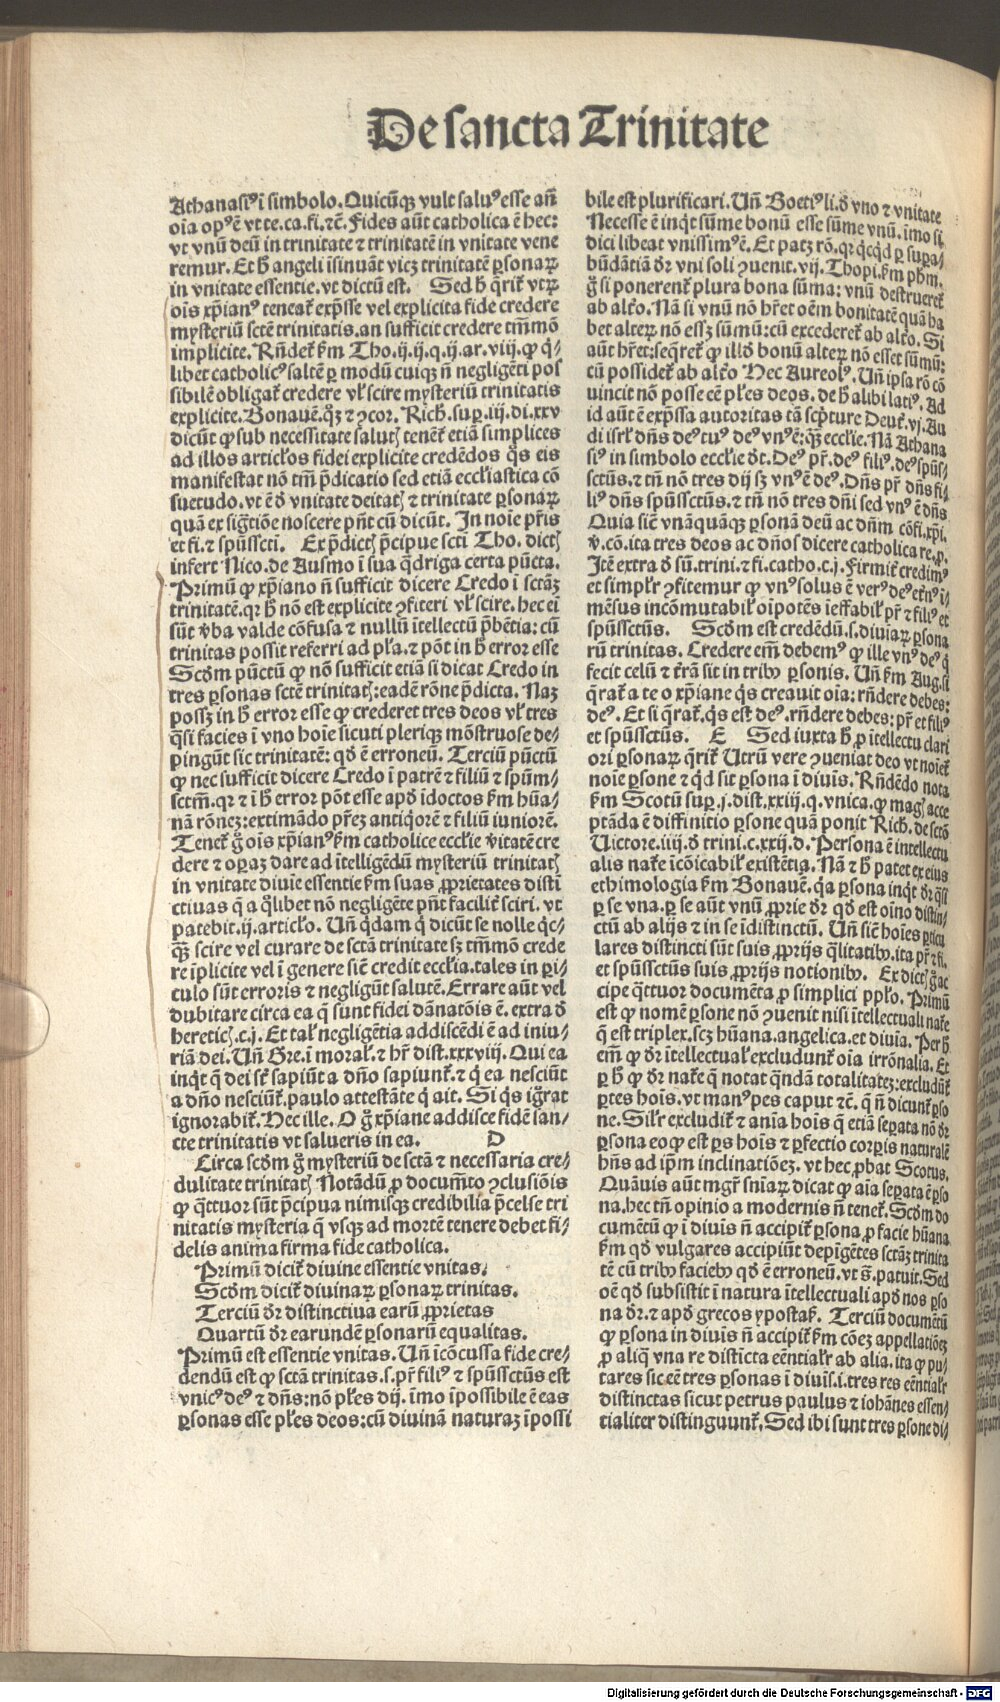 De sancta Trinitate
Athanasiꝰ ī simbolo. Quicūqꝫ vult saluꝰ esse añ
oīa opꝰ ē vt te. ca. fi. ⁊c̄. Fides aūt catholica ē hec:
vt vnū deū in trinitate ⁊ trinitatē in vnitate vene
remur. Et h̄ angeli īsinuāt vicꝫ trinitatē ꝑsonaꝝ
in vnitate essentie. vt dictū est. Sed h̄ q̄rit᷑ vtꝝ
oīs xp̄ianꝰ teneat᷑ exp̄sse vel explicita fide credere
mysteriū scte trinitatis. an sufficit credere tm̄mō
implicite. Rn̄det᷑ ẜm Tho. ij. ij. q. ij. ar. viij. ꝙ q̄-
libet catholicꝰ saltē ꝑ modū cuiqꝫ ñ negligēti pos
sibilē obligat᷑ credere vl̓ scire mysteriū trinitatis
explicite. Bonauē. qꝫ ⁊ ꝯcor. Rich. sup̱. iij. di. xxv
dicūt ꝙ sub necessitate salutꝭ tenēt᷑ etiā simplices
ad illos articl̓os fidei explicite credēdos q̊s eis
manifestat nō tm̄ p̄dicatio sed etiā eccl̓iastica cō
suetudo. vt ē đ vnitate deitatꝭ ⁊ trinitate ꝑsonaꝝ
quā ex sigt̄iōe noscere pn̄t cū dicūt. In noīe pr̄is
et fi. ⁊ sp̄ūssctī. Ex p̄dictꝭ p̄cipue sctī Tho. dictꝭ
infert Nico. de Ausmo ī sua q̄driga certa pūcta.
Primū ꝙ xp̄iano ñ sufficit dicere Credo ī sctāꝫ
trinitatē. qꝛ h̄ nō est explicite ꝯfiteri vl̓ scire. hec eī
sūt v̓ba valde cōfusa ⁊ nullū ītellectū p̄bētia: cū
trinitas possit referri ad pl̓a. ⁊ pōt in h̄ error esse
Scđm pūctū ꝙ nō sufficit etiā si dicat Credo in
tres ꝑsonas scte trinitatꝭ: eadē rōne p̄dicta. Naꝫ
possꝫ in h̄ error esse ꝙ crederet tres deos vl̓ tres
q̄si facies ī vno hoīe sicuti pleriqꝫ mōstruose de-
pingūt sic trinitatē: qđ ē erroneū. Terciū pūctū
ꝙ nec sufficit dicere Credo ī patrē ⁊ filiū ⁊ sp̄ūm-
sctm̄. qꝛ ⁊ ī h̄ error pōt esse apđ īdoctos ẜm hūa-
nā rōneꝫ: extimādo pr̄eꝫ antiq̊rē ⁊ filiū iuniorē.
Tenet᷑ g̊ oīs xp̄ianꝰ ẜm catholice eccl̓ie v̓itatē cre
dere ⁊ oꝑaꝫ dare ad ītelligēdū mysteriū trinitatꝭ
in vnitate diuīe essentie ẜm suas ꝓprietates distī
ctiuas q̄ a q̊libet nō negligēte pn̄t facilit̓ sciri. vt
patebit. ij. articl̓o. Uñ q̇dam q̇ dicūt se nolle q̇c-
q̄ꝫ scire vel curare de sctā trinitate sꝫ tm̄mō crede
re īplicite vel ī genere sic̄ credit eccl̓ia. tales in ꝑi-
culo sūt erroris ⁊ negligūt salutē. Errare aūt vel
dubitare circa ea q̄ sunt fidei dānatōis ē. extra đ
hereticꝭ. c. j. Et tal̓ negligētia addiscēdi ē ad iniu-
riā dei. Uñ Gre. ī moral̓. ⁊ hr̄ dist. xxxviij. Qui ea
inq̇t q̄ dei st̄ sapiūt a dn̄o sapiunt᷑. ⁊ q̇ ea nesciūt
a dn̄o nesciūt᷑. paulo attestāte q̇ ait. Si q̇s ig̊rat
ignorabit᷑. Hec ille. O g̊ xp̄iane addisce fidē san-
cte trinitatis vt salueris in ea. D
Circa scđm g̊ mysteriū de sctā ⁊ necessaria cre-
dulitate trinitatꝭ Notādū ꝓ documēto ꝯclusiōis
ꝙ q̄ttuor sūt p̄cipua nimisqꝫ credibilia p̄celse tri
nitatis mysteria q̄ vsqꝫ ad mortē tenere debet fi-
delis anima firma fide catholica.
Primū dicit᷑ diuine essentie vnitas.
Scđm dicit᷑ diuinaꝝ ꝑsonaꝝ trinitas.
Terciū dr̄ distinctiua earū ꝓprietas
Quartū dr̄ earundē ꝑsonarū equalitas.
Primū est essentie vnitas. Uñ īcōcussa fide cre-
dendū est ꝙ sctā trinitas. s. pr̄ filiꝰ ⁊ sp̄ūssctūs est
vnicꝰ deꝰ ⁊ dn̄s: nō pl̓es dij. īmo īpossibile ē eas
ꝑsonas esse pl̓es deos: cū diuinā naturaꝫ īpossi
bile est plurificari. Uñ Boetiꝰ li. đ vno ⁊ vnitate
Necesse ē inq̇t sūme bonū esse sūme vnū. īmo si
dici libeat vnissimꝰ ē. Et patꝫ rō. qꝛ q̇cq̇d ꝑ suꝑa-
būdātiā dr̄ vni soli ꝯuenit. vij. Thopi. ẜm ph̄m.
g̊ si ponerent᷑ plura bona sūma: vnū destrueret᷑
ab alt̓o. Nā si vnū nō hr̄et oēm bonitatē quā ha
bet alteꝝ nō essꝫ sūmū: cū excederet᷑ ab alt̓o. Si
aūt hr̄et: seq̄ret᷑ ꝙ illđ bonū alteꝝ nō esset sūmū:
cū possidet᷑ ab alt̓o Hec Aureolꝰ. Uñ ipsa rō cō
uincit nō posse eē pl̓es deos. de h̄ alibi latiꝰ. Ad
id aūt ē exp̄ssa autoritas tā sc̓pture Deut̓. vj. Au
di isrl̓ dn̄s deꝰ tuꝰ deꝰ vnꝰ ē: q̄ꝫ eccl̓ie. Nā Athana
siꝰ in simbolo eccl̓ie đt. Deꝰ pr̄. deꝰ filiꝰ. deꝰ sp̄ūs-
sctūs. ⁊ tn̄ nō tres dij sꝫ vnꝰ ē deꝰ. Dn̄s pr̄ dn̄s fi-
liꝰ dn̄s sp̄ūssctūs. ⁊ tn̄ nō tres dn̄i sed vnꝰ ē dn̄s
Quia sic̄ vnāquāqꝫ ꝑsonā deū ac dn̄m cōfi. xp̄i.
v̓. cō. ita tres deos ac dn̄os dicere catholica re. ꝓ.
Itē extra đ sū. trini. ⁊ fi. catho. c. j. Firmit̓ credimꝰ
et simpl̓r ꝯfitemur ꝙ vnꝰ solus ē verꝰ deꝰ et̓nꝰ ī-
mēsus incōmutabil̓ oīpotēs ieffabil̓ pr̄ ⁊ filiꝰ et
sp̄ūssctūs. Scđm est credēdū. s. diuīaꝝ ꝑsona
rū trinitas. Credere em̄ debemꝰ ꝙ ille vnꝰ deꝰ q̇
fecit celū ⁊ t̓rā sit in tribꝰ ꝑsonis. Uñ ẜm Aug. si
q̄rat᷑ a te o xp̄iane q̇s creauit oīa: rn̄dere debes:
deꝰ. Et si q̄rat᷑. q̇s est deꝰ. rn̄dere debes: pr̄ et filiꝰ
et sp̄ūssctūs. E Sed iuxta h̄ ꝓ ītellectu clari
ori ꝑsonaꝝ q̄rit᷑ Utrū vere ꝯueniat deo vt noīet᷑
noīe ꝑsone ⁊ q̇d sit ꝑsona ī diuīs. Rn̄dēdo nota
ẜm Scotū sup̱. j. dist. xxiij. q. vnica. ꝙ magꝭ acce
ptāda ē diffinitio ꝑsone quā ponit Rich. de sctō
Uictore. iiij. đ trini. c. xxij. d. Persona ē intellectu
alis nat̓e īcōicabil̓ existētia. Nā ⁊ h̄ patet ex eius
ethimologia ẜm Bonauē. q̇a ꝑsona inq̇t dr̄ q̄si
ꝑ se vna. ꝑ se aūt vnū ꝓprie dr̄ qđ est oīno distin-
ctū ab alijs ⁊ in se īdistinctū. Uñ sic̄ hoīes ꝑticu
lares distincti sūt suis ꝓprijs q̄litatibꝰ. ita pr̄ ⁊ fi.
et sp̄ūssctūs suis ꝓprijs notionibꝰ. Ex dictꝭ g̊ ac
cipe q̄ttuor documēta ꝓ simplici pplo. Primū
est ꝙ nomē ꝑsone nō ꝯuenit nisi ītellectuali nat̓e
q̄ est triplex. scꝫ hūana. angelica. et diuīa. Per h̄
em̄ ꝙ dr̄ ītellectual̓ excludunt᷑ oīa irrōnalia. Et
ꝑ h̄ ꝙ dr̄ nat̓e q̄ notat q̄ndā totalitateꝫ: excludūt᷑
ꝑtes hoīs. vt manꝰ pes caput ⁊c̄. q̄ ñ dicunt᷑ ꝑso
ne. Sil̓r excludit᷑ ⁊ anīa hoīs q̄ etiā seꝑata nō dr̄
ꝑsona eo ꝙ est ꝑs hoīs ⁊ ꝑfectio corꝑis naturalē
hn̄s ad ip̄m inclinatiōeꝫ. vt hec ꝓbat Scotus.
Quāuis aūt mgr̄ sn̄iaꝝ dicat ꝙ aīa seꝑata ē ꝑso
na. hec tn̄ opinio a modernis ñ tenet᷑. Scđm do
cumētū ꝙ ī diuīs ñ accipit᷑ ꝑsona ꝓ facie hūana
ẜm qđ vulgares accipiūt depīgētes sctāꝫ trinita
tē cū tribꝰ faciebꝰ qđ ē erroneū. vt s̄. patuit. Sed
oē qđ subsistit ī natura ītellectuali apđ nos ꝑso
na dr̄. ⁊ apđ grecos ypostaẜ. Terciū documētū
ꝙ ꝑsona in diuīs ñ accipit᷑ ẜm cōeꝫ appellatiōeꝫ
ꝓ aliq̇ vna re distīcta eēntial̓r ab alia. ita ꝙ pu-
tares sic eē tres ꝑsonas ī diuīs. i. tres res eēntial̓r
distinctas sicut petrus paulus ⁊ iohānes essen-
tialiter distinguunt᷑. Sed ibi sunt tres ꝑsone di-
Digitalisierung gefördert durch die Deutsche Forschungsgemeinschaft - DFG